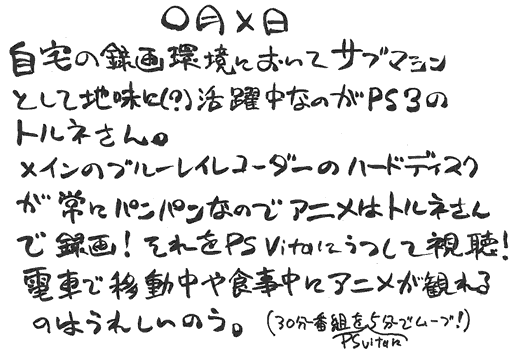 〇月×日
自宅の録画環境においてサブマシン
として地味に(?)活躍中なのがPS3の
トルネさん。
メインのブルーレイレコーダーのハードディスク
が常にパンパンなのでアニメはトルネさん
で録画!それをPS Vitaにうつして視聴!
電車で移動中や食事中にアニメが観れる
のはうれしいのう。(30分番組を5分でムーブ!)
PSvitaに